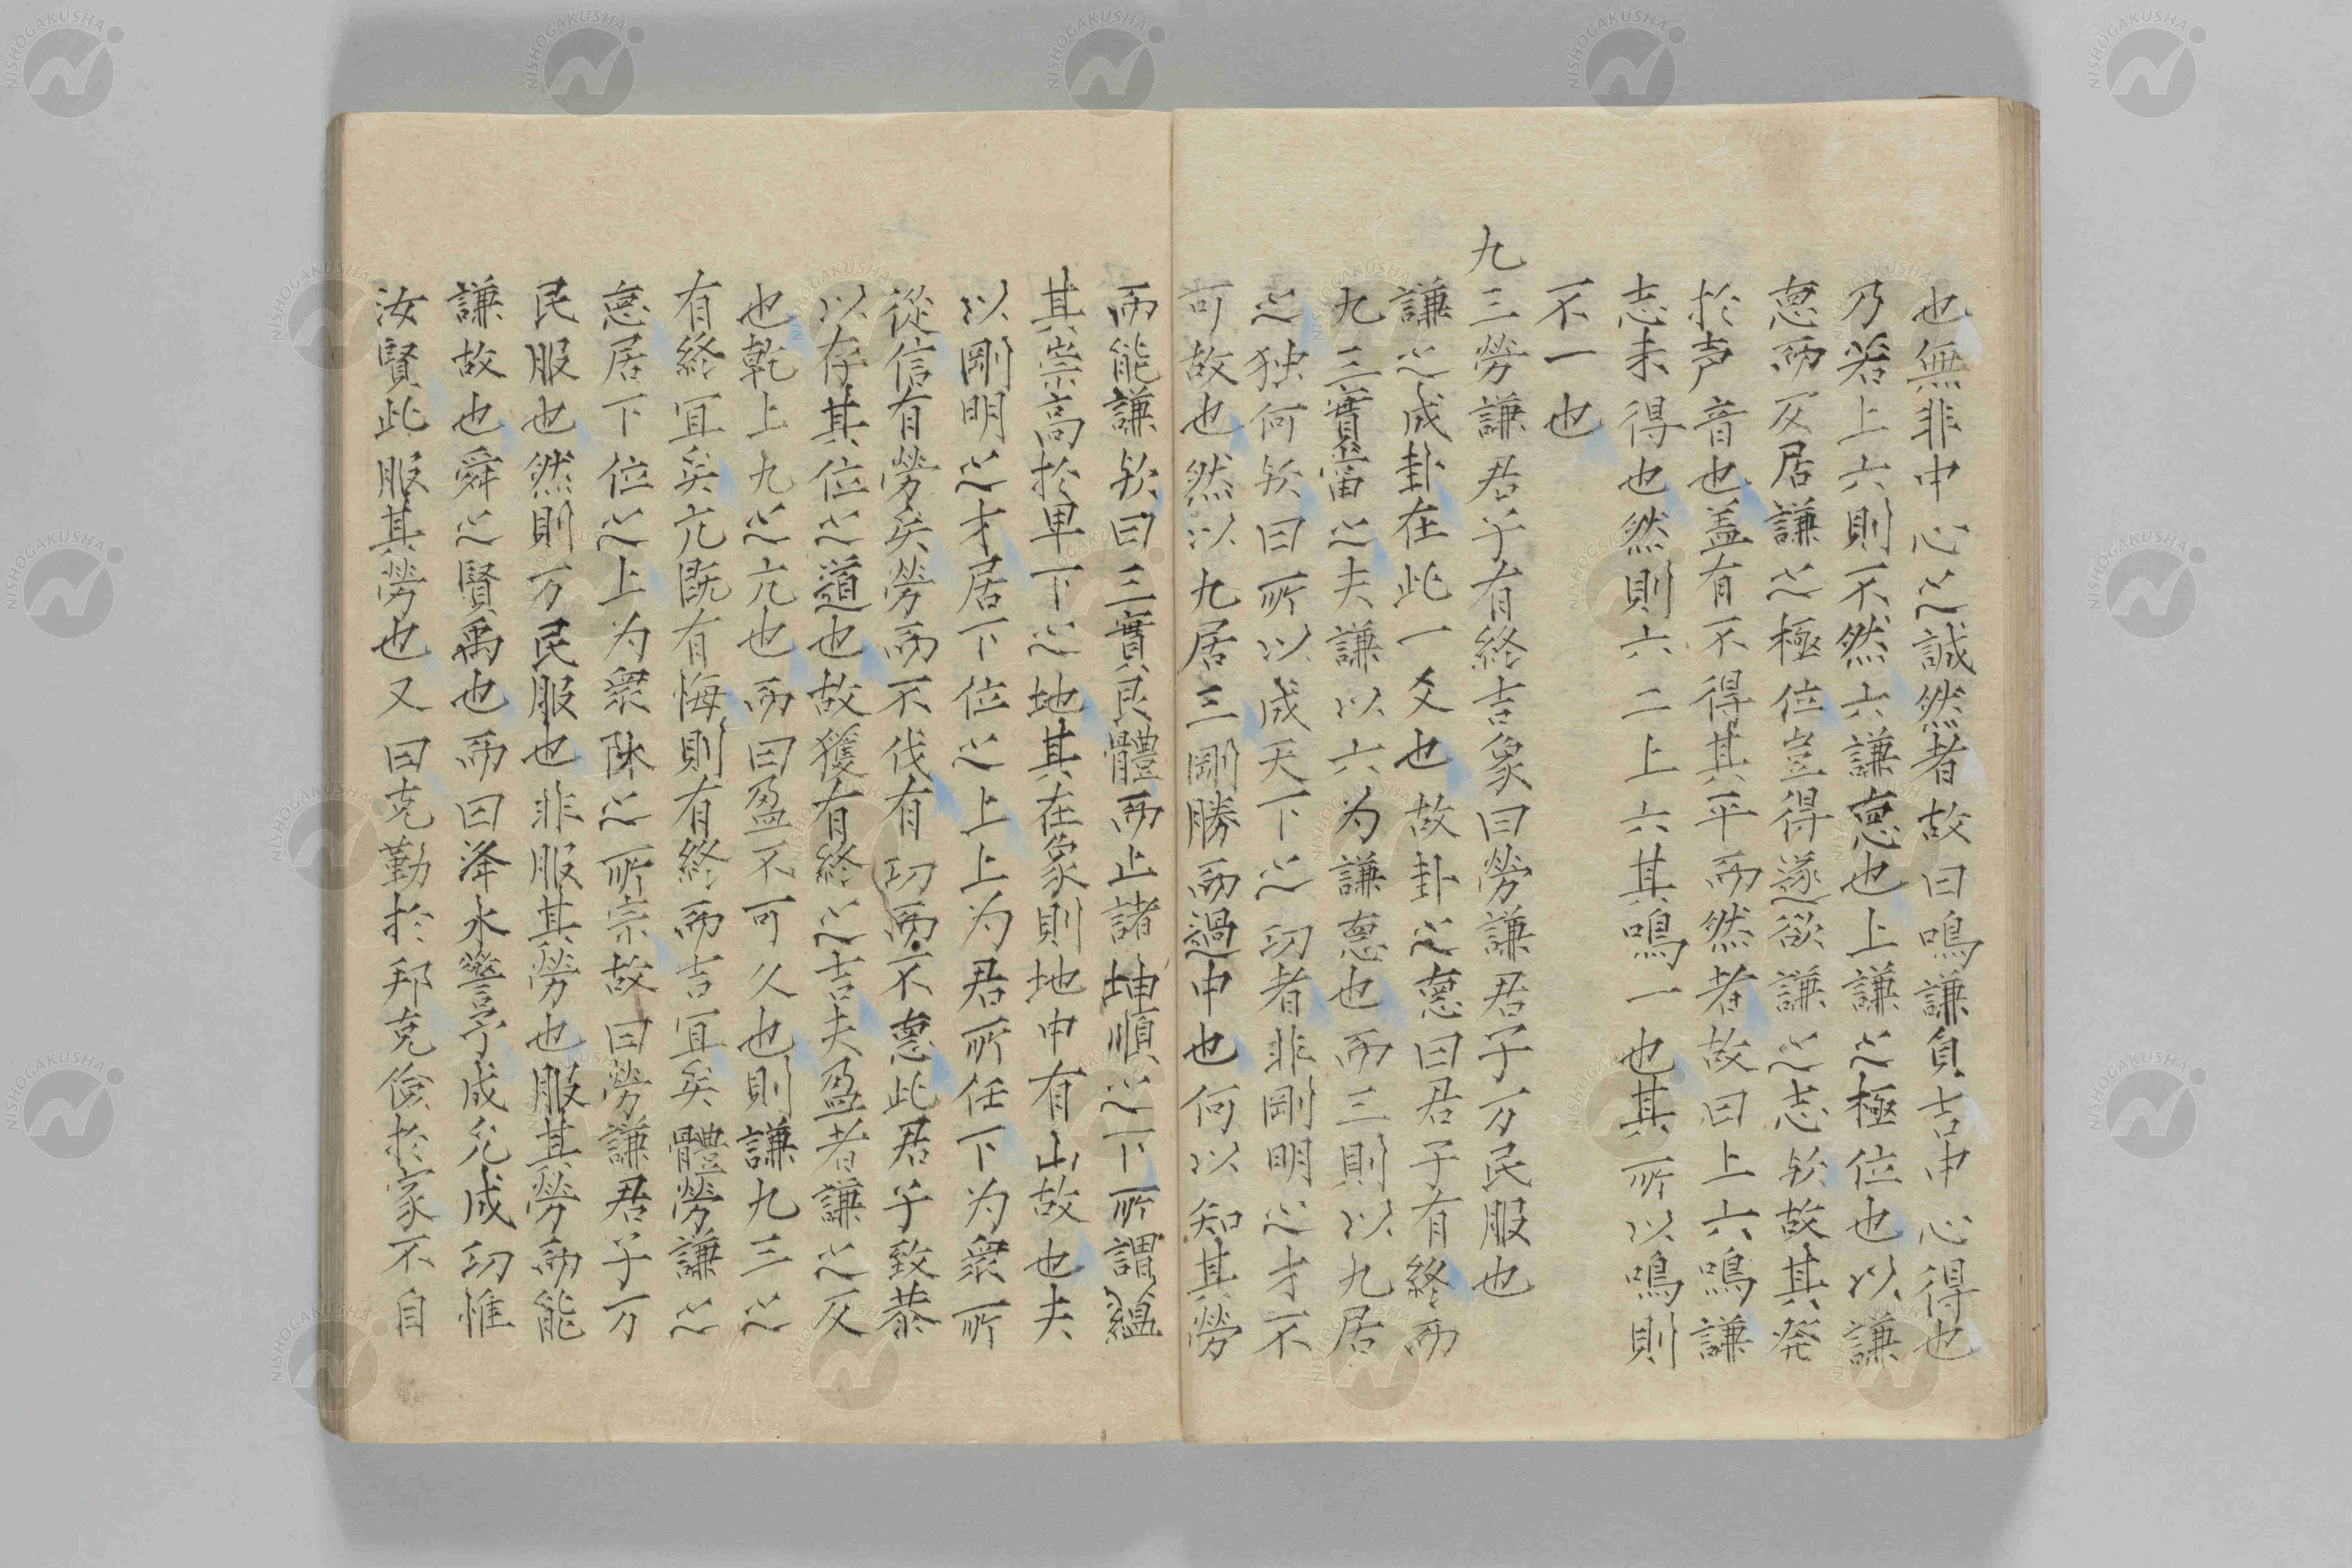 也無非中心之誠然者故曰鳴謙貞吉中心得也
乃若上六則不然六謙悳也上謙之極位也以謙
悳而反居謙之極位豈得遂欲謙之志欤故其発
於声音也盖有不得其平而然者故曰上六鳴謙
志未得也然則六二上六其鳴一也其所以鳴則
不一也
九三勞謙君子有終吉象曰勞謙君子万民服也
謙之成卦在此一爻也故卦之悳曰君子有終而
九三實當之夫謙以六为謙悳也而三則以九居
之独何欤曰所以成天下之功者非剛明之才不
可故也然以九居三剛勝而過中也何以知其勞
而能謙欤曰三實艮體而止諸坤順之下所謂蘊
其崇高於卑下之地其在象則地中有山故也夫
以剛明之才居下位之上上为君所任下为衆所
從信有勞矣勞而不伐有功而不悳此君子致恭
以存其位之道也故獲有終之吉夫盈者謙之反
也乾上九之亢也而曰盈不可久也則謙九三之
有終宜矣亢既有悔則有終而吉宜矣體勞謙之
悳居下位之上为衆陰之所宗故曰勞謙君子万
民服也然則万民服也非服其勞也服其勞而能
謙故也舜之賢禹也而曰洚水警予成允成功惟
汝賢此服其勞也又曰克勤於邦克儉於家不自
NISHOGAKUSHA